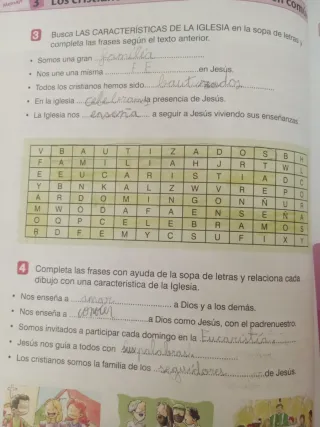 3 Busca LAS CARACTERÍSTICAS DE LA IGLESIA en la sopa de letras y
completa las frases según el texto anterior.
• Somos una gran familia
• Nos une una misma FE en Jesús.
• Todos los cristianos hemos sido bautizados
• En la iglesia celebramos la presencia de Jesús.
• La Iglesia nos enseña a seguir a Jesús viviendo sus enseñanzas
V B A U T I Z A D O S B H
F A M I L I A H J R T W L
E E U C A R I S T I A D C
Y B N K A L Z W V R E P O
A R D O M I N G O N Ñ U R
M W O D A F A E N S E Ñ A
O Q P C E L E B R A M O S
B D F E M Y C S U F I X Y
4 Completa las frases con ayuda de la sopa de letras y relaciona cada
dibujo con una característica de la Iglesia.
• Nos enseña a amar a Dios y a los demás.
• Nos enseña a a Dios como Jesús, con el padrenuestro.
• Somos invitados a participar cada domingo en la Eucaristía
• Jesús nos guía a todos con sus palabras.
• Los cristianos somos la familia de los seguidores de Jesús.